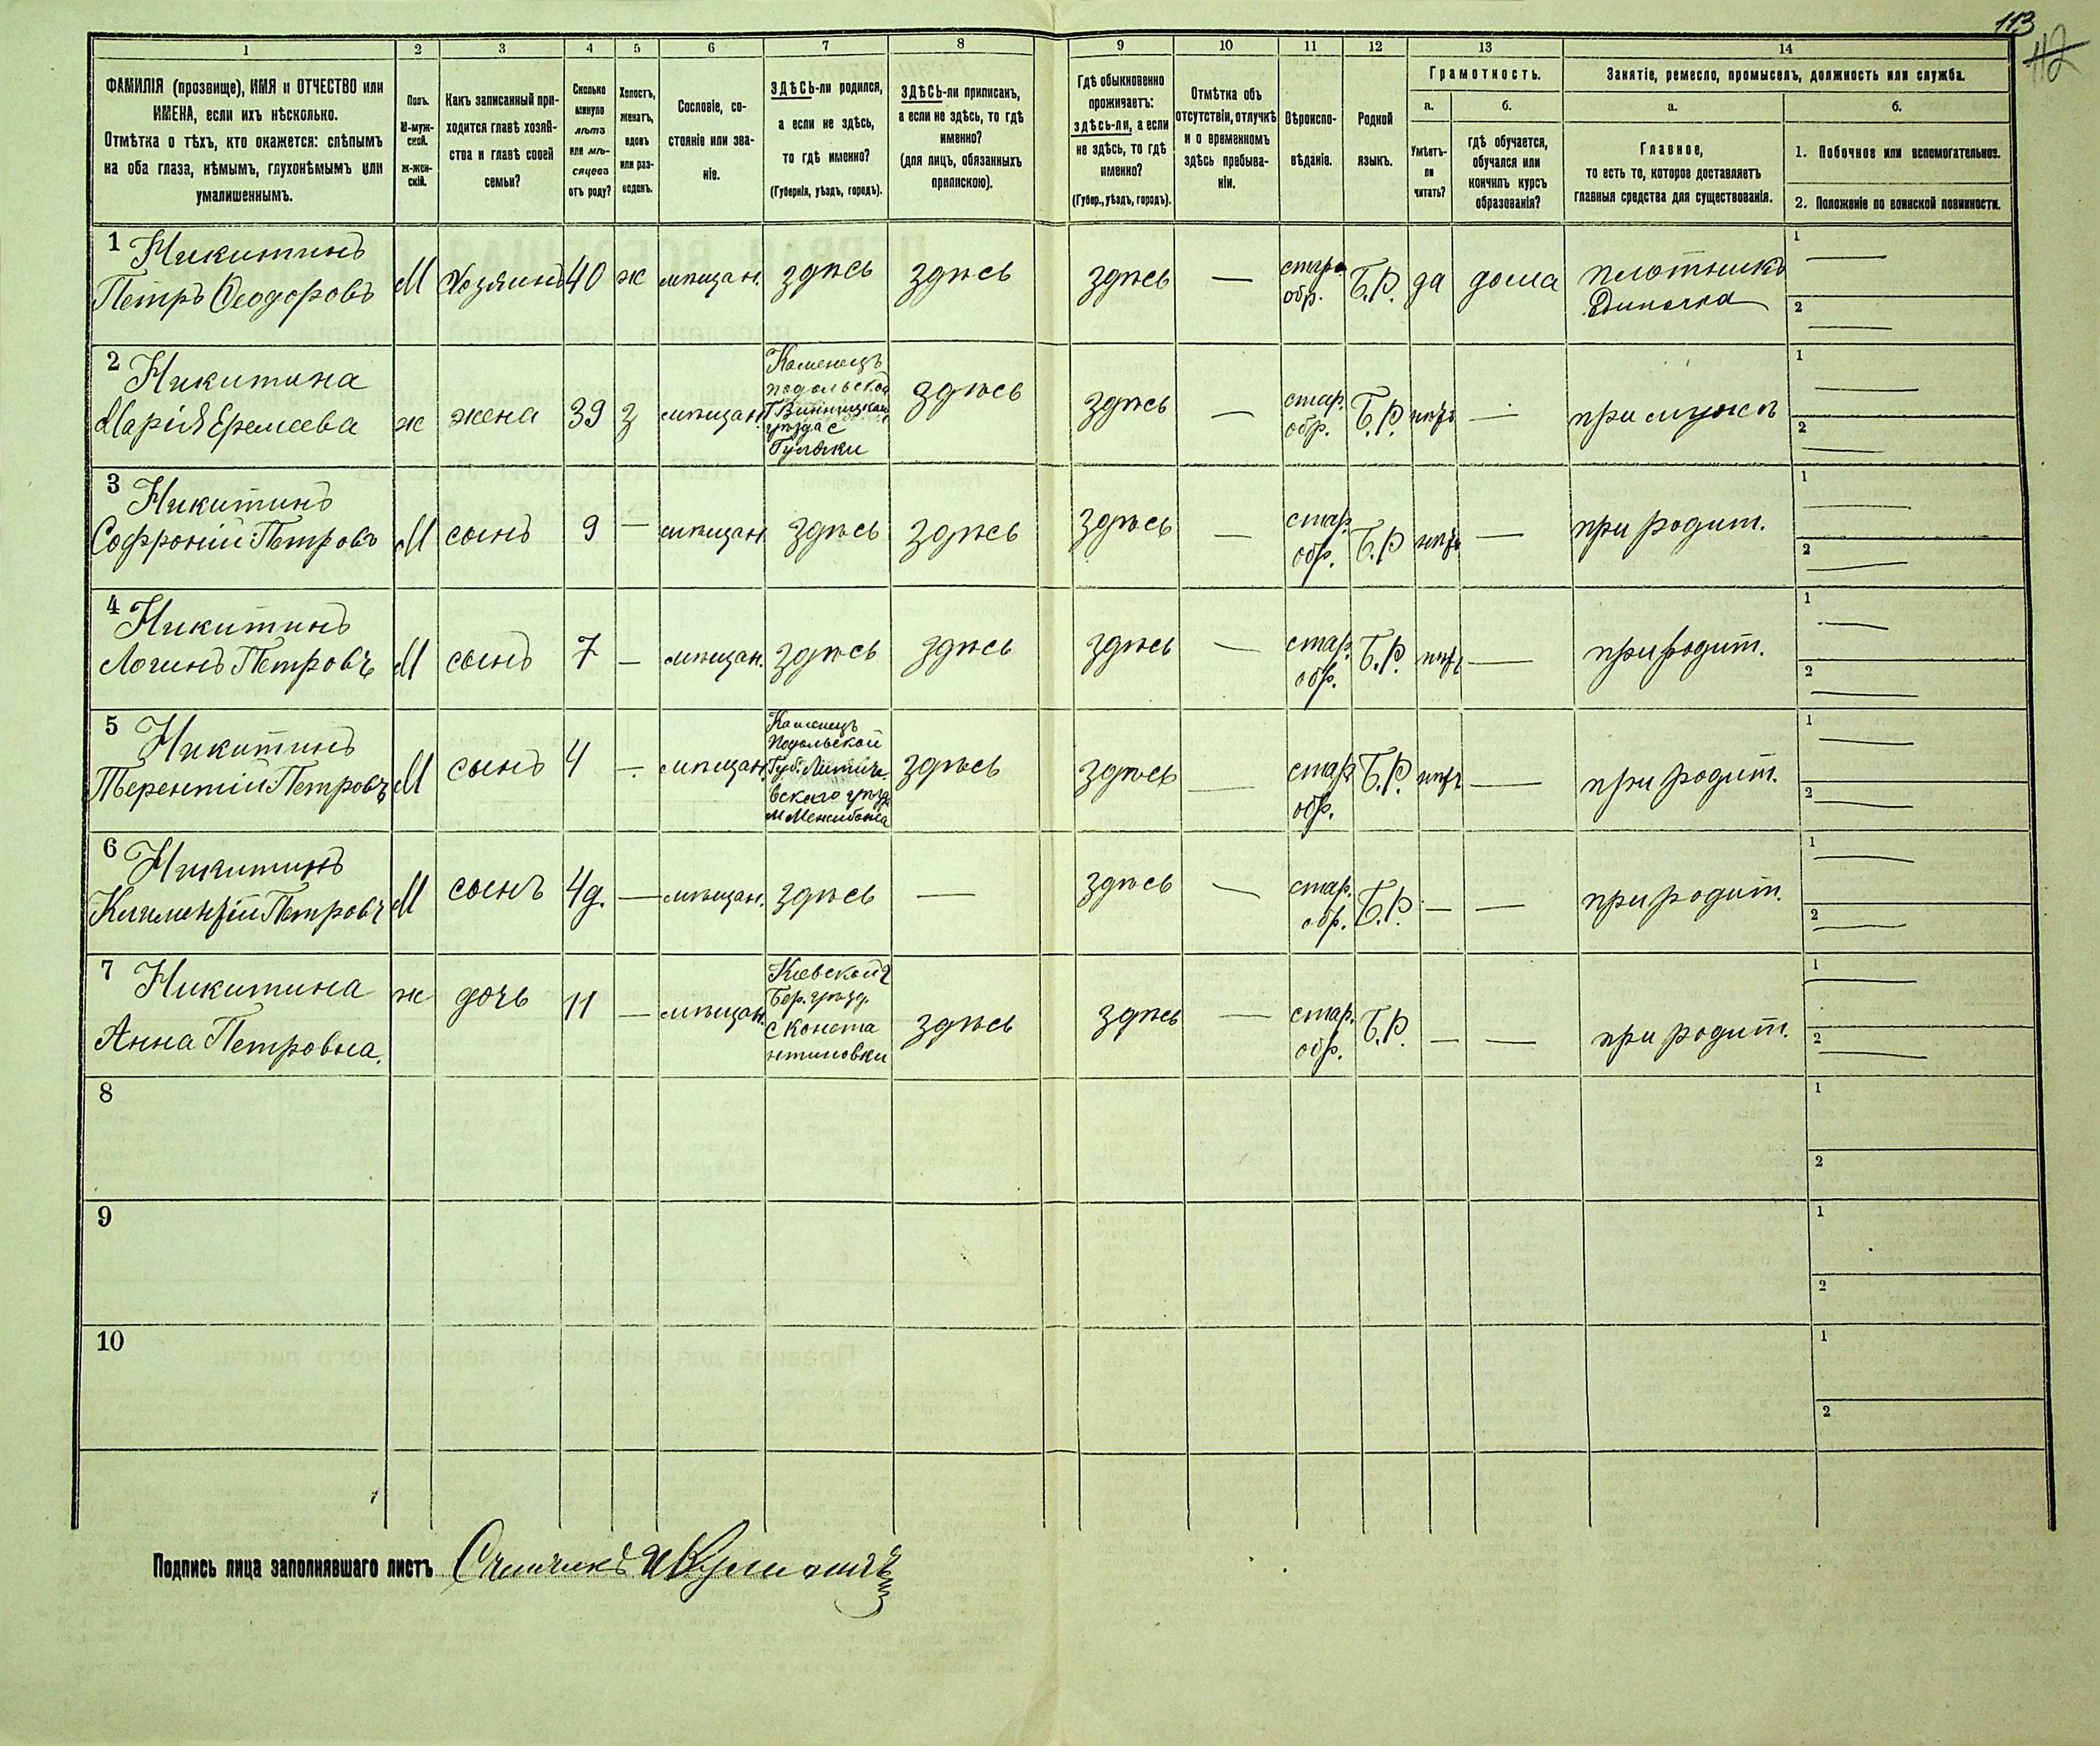 113
112
1 2 3 4 5 6 7 8 9 10 11 12 13 14
ФАМИЛІЯ (прозвище), ИМЯ и ОТЧЕСТВО или
ИМЕНА, если ихъ нѣсколько.
Отмѣтка о тѣхъ, кто окажется: слѣпымъ
на оба глаза, нѣмымъ, глухонѣмымъ или
умалишеннымъ.
Полъ.
М-муж-
ской.
ж-жен-
скій.
Какъ записанный при-
ходится главѣ хозяй-
ства и главѣ своей
семьи?
Сколько
минуло
лѣтъ
или мѣ-
сяцевъ
отъ роду?
Холостъ,
женатъ,
вдовъ
или раз-
веденъ.
Сословіе, со-
стояніе или зва-
ніе.
ЗДѢСЬ-ли родился,
а если не здѣсь,
то гдѣ именно?
(Губернія, уѣздъ, городъ).
ЗДѢСЬ-ли приписанъ,
а если не здѣсь, то гдѣ
именно?
(для лицъ, обязанныхъ
припискою).
Гдѣ обыкновенно
проживаетъ:
здѣсь-ли, а если
не здѣсь, то гдѣ
именно?
(Губер., уѣздъ, городъ).
Отмѣтка объ
отсутствіи, отлучкѣ
и о временномъ
здѣсь пребыва-
ніи.
Вѣроиспо-
вѣданіе.
Родной
языкъ.
Грамотность.
а.
Умѣетъ-
ли
читать?
б.
гдѣ обучается,
обучался или
кончилъ курсъ
образованія?
Занятіе, ремесло, промыселъ, должность или служба.
а.
Главное,
то есть то, которое доставляетъ
главныя средства для существованія.
б.
1. Побочное или вспомогательное.
2. Положеніе по воинской повинности.
1 Никитинъ
Петръ Ѳеодоровъ
М Хозяинъ 40 ж мѣщан. здѣсь здѣсь здѣсь —
старо
обр.
Б.Р. да дома
плотникъ
Одиночка
1 —
2 —
2 Никитина
Марія Еремеева
ж жена 39 з мѣщан.
Каменецъ
подольской
Г Винницкаго
уѣзда с
здѣсь здѣсь —
стар.
обр.
Б.Р. нѣтъ — при мужѣ
1 —
2 —
3 Никитинъ
Софроній Петровъ
М сынъ 9 — мѣщан. здѣсь здѣсь здѣсь —
стар.
обр.
Б.Р нѣтъ — при родит.
1 —
2 —
4 Никитинъ
Логинъ Петровъ
М сынъ 7 — мѣщан. здѣсь здѣсь здѣсь —
стар.
обр.
Б.Р. нѣтъ — при родит.
1 —
2 —
5 Никитинъ
Терентій Петровъ
М сынъ 4 — мѣщан.
Каменецъ
Подольской
Губ. Литиче.
вскаго уѣзд.
м Межибожа
здѣсь здѣсь —
стар.
обр.
Б.Р. нѣтъ — при родит.
1 —
2 —
6 Никитинъ
Климентій Петровъ
М сынъ 4д. — мѣщан. здѣсь — здѣсь —
стар.
обр.
Б.Р. — — при родит.
1 —
2 —
7 Никитина
Анна Петровна.
ж дочь 11 — мѣщан.
Кіевской г
Бер. уѣзд.
с Конста
нтиновки
здѣсь здѣсь —
стар.
обр.
Б.Р. — — при родит.
1 —
2 —
8
1
2
9
1
2
10
1
2
Подпись лица заполнявшаго листъ Счетчикъ